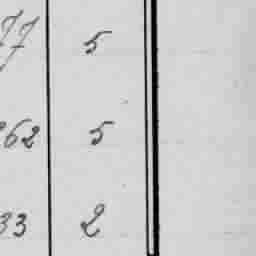 77 5
262 5
33 2